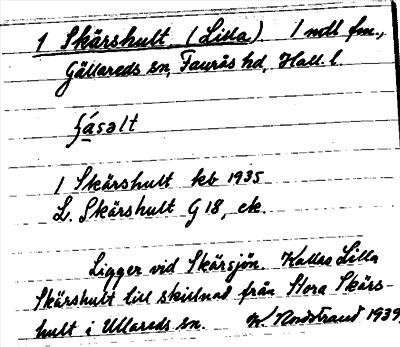 1 Skärshult (Lilla) 1 mdl fm.,
Gällareds sn, Faurås hd, Hall. l.
1 Skärshult kb 1935
L. Skärshult G 18, ek.
Ligger vid Skärsjön. Kallas Lilla
Skärshult till skillnad från Stora Skärs-
hult i Ullareds sn. K. Nordstrand 1939